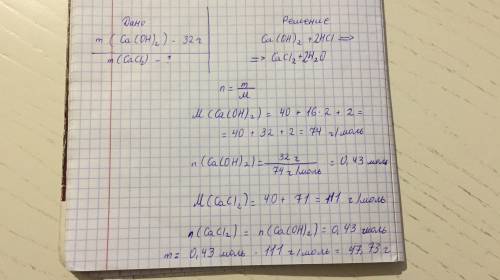 Дано
m (Ca(OH)₂) - 32 г
m(CaCl₂) - ?
Решение
Ca(OH)₂ + 2HCl =>
=> CaCl₂ + 2H₂O
n = m/M
M (Ca(OH)₂) = 40 + 16·2 + 2 =
= 40 + 32 + 2 = 74 г/моль
n (Ca(OH)₂) = 32 г / 74 г/моль = 0,43 моль
M (CaCl₂) = 40 + 71 = 111 г/моль
n (CaCl₂) = n (Ca(OH)₂) = 0,43 моль
m = 0,43 моль · 111 г/моль = 47,73 г